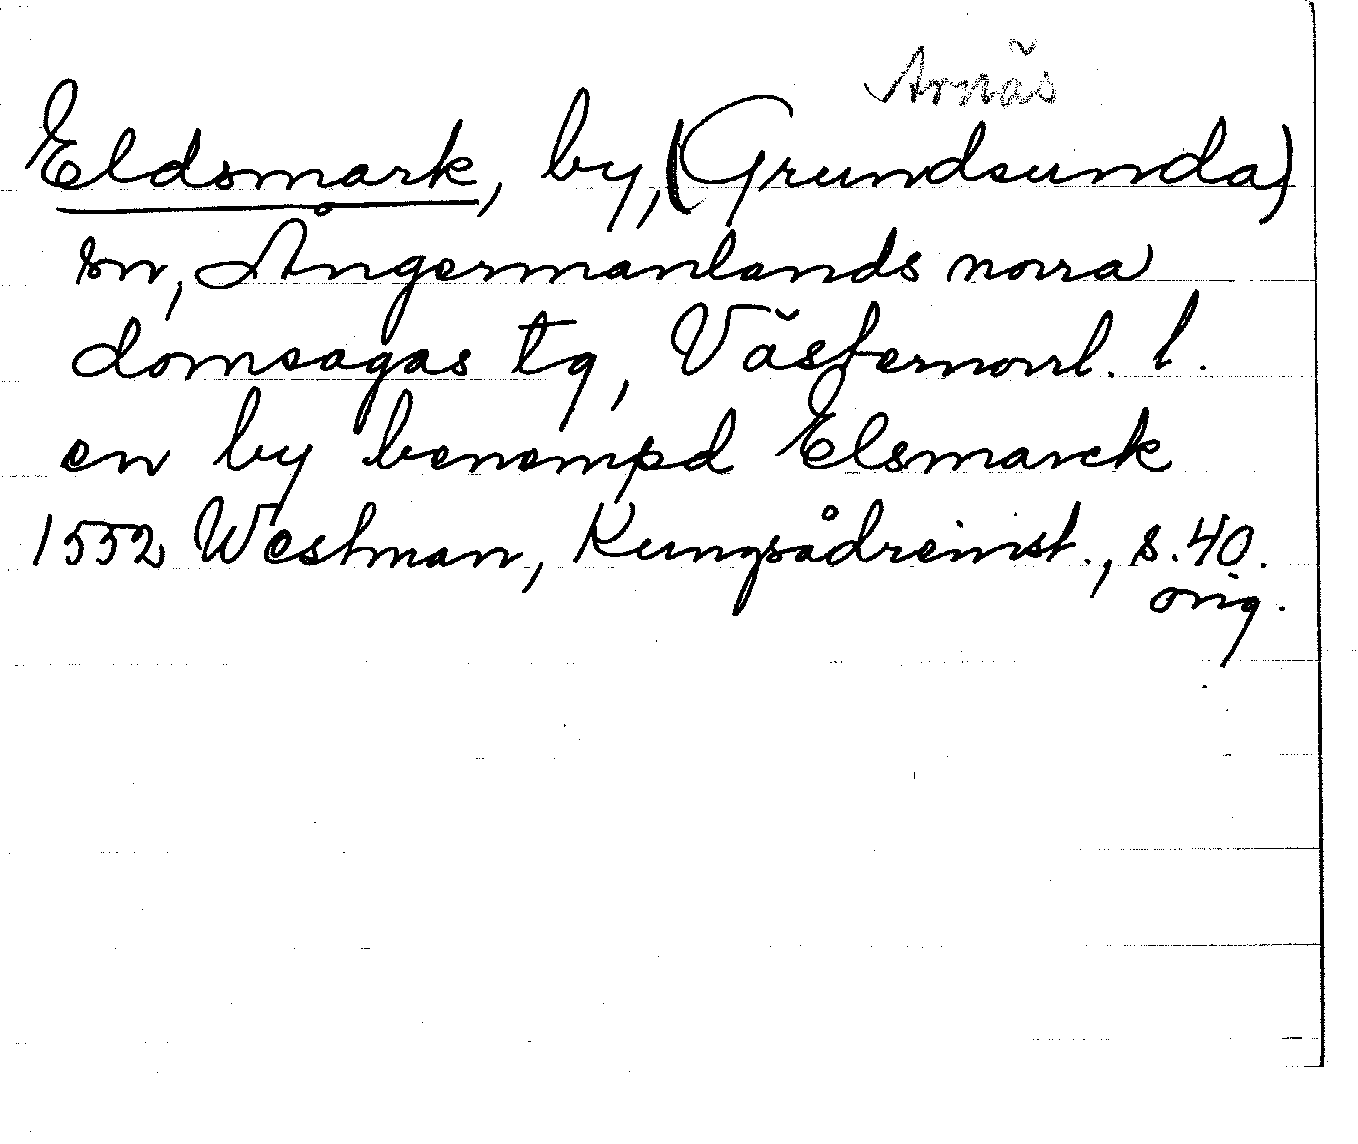 Arnäs
Eldsmark, by, (Grundsunda)
sn, Ångermanlands norra
domsagas tg, Västernorrl. l.
en by benempd Elsmarck
1552 Westman, Kungsådreinst., s. 40.
orig.